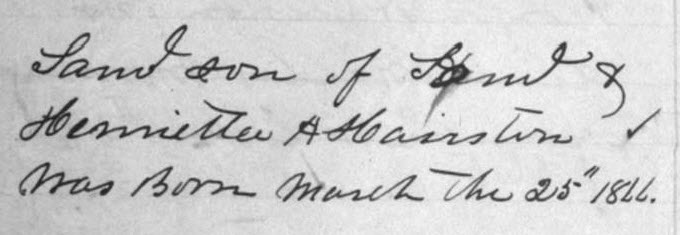 Saml son of Saml &
Henrietta A Hairston
was Born March the 25"